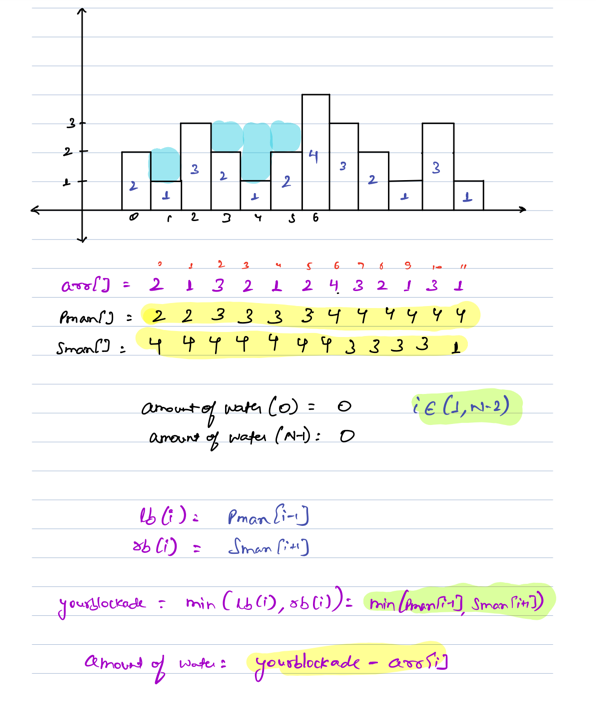 3
2
1
2 1 3 2 1 2 4 3 2 1 3 1
0 1 2 3 4 5 6
0 1 2 3 4 5 6 7 8 9 10 11
arr[] = 2 1 3 2 1 2 4 3 2 1 3 1
Pmax[] = 2 2 3 3 3 3 4 4 4 4 4 4
Smax[] : 4 4 4 4 4 4 4 3 3 3 3 1
amount of water (0) = 0 i ∈ (1, N-2)
amount of water (N-1) : 0
lb(i) = Pmax[i-1]
rb(i) = Smax[i+1]
yourblockade = min(lb(i), rb(i)) = min(Pmax[i-1], Smax[i+1])
amount of water = yourblockade - arr[i]